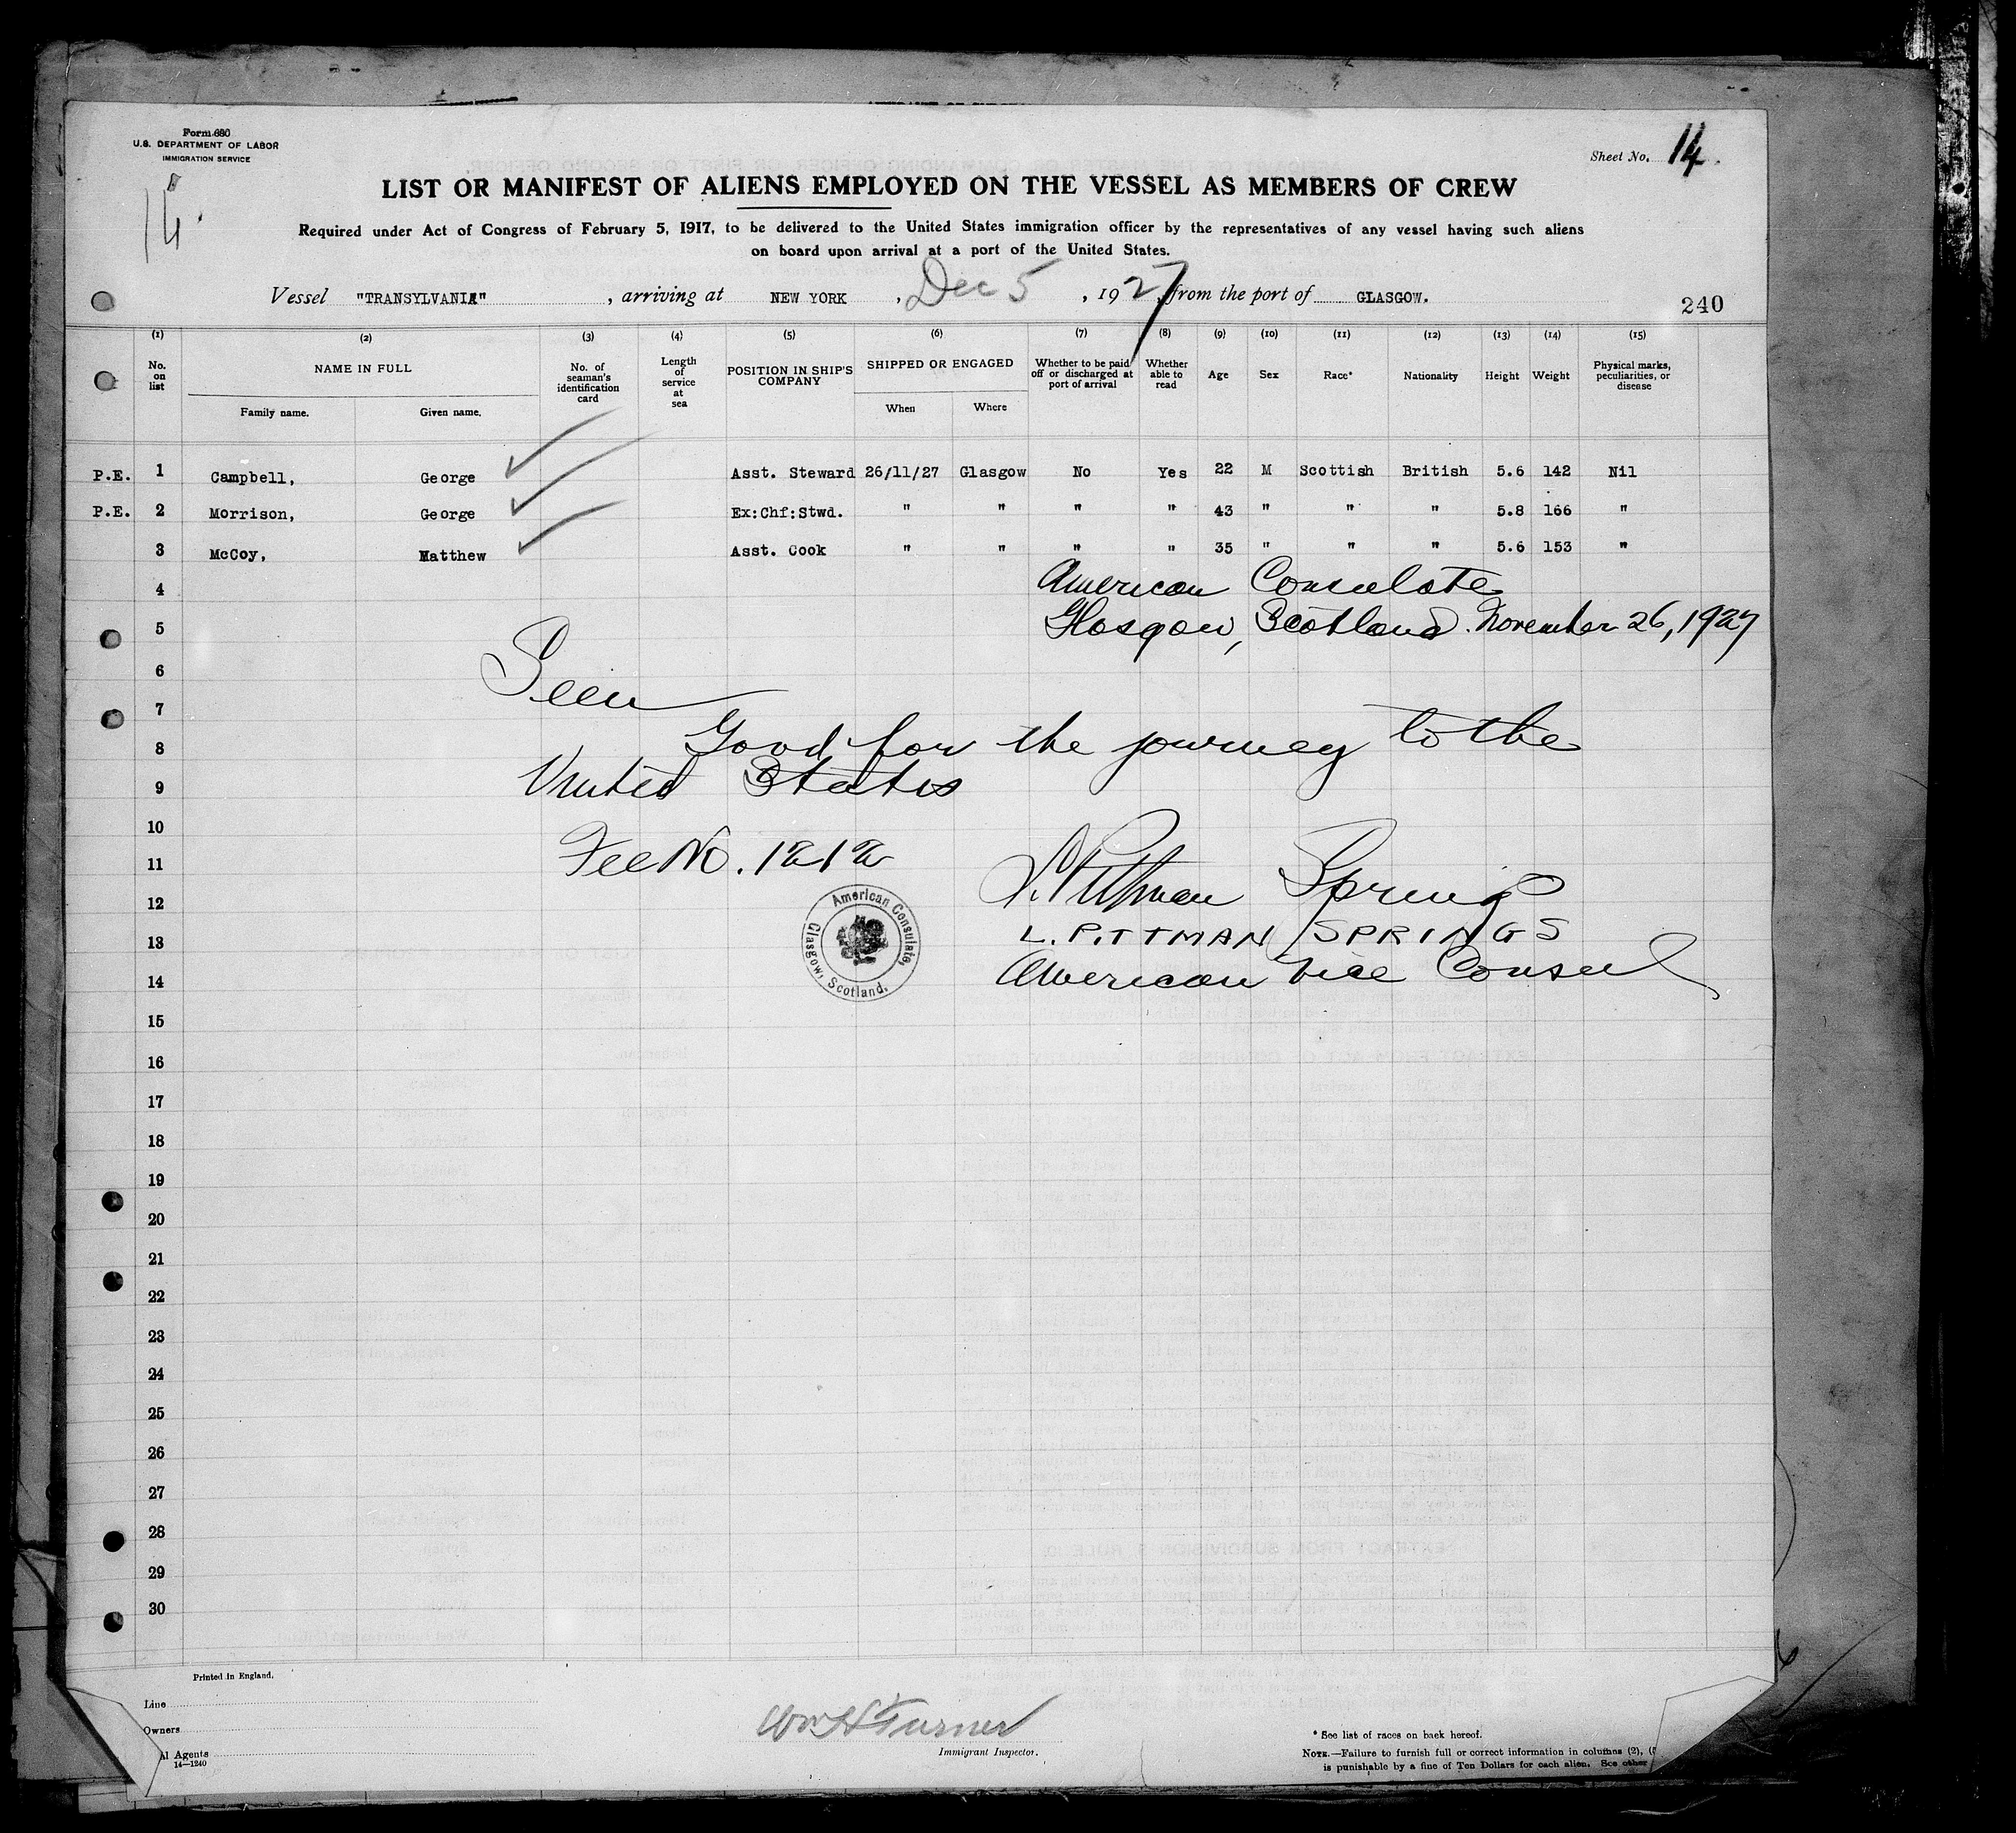 Form 680
U.S. DEPARTMENT OF LABOR
IMMIGRATION SERVICE
Sheet No. 14
14
LIST OR MANIFEST OF ALIENS EMPLOYED ON THE VESSEL AS MEMBERS OF CREW
Required under Act of Congress of February 5, 1917, to be delivered to the United States immigration officer by the representatives of any vessel having such aliens
on board upon arrival at a port of the United States.
Vessel "TRANSYLVANIA", arriving at NEW YORK, Dec 5, 1927, from the port of GLASGOW.
240
(1) (2) (3) (4) (5) (6) (7) (8) (9) (10) (11) (12) (13) (14) (15)
No. on list
NAME IN FULL
Family name. Given name.
No. of seaman's identification card
Length of service at sea
POSITION IN SHIP'S COMPANY
SHIPPED OR ENGAGED
When Where
Whether to be paid off or discharged at port of arrival
Whether able to read
Age
Sex
Race*
Nationality
Height
Weight
Physical marks, peculiarities, or disease
P.E. 1 Campbell, George Asst. Steward 26/11/27 Glasgow No Yes 22 M Scottish British 5.6 142 Nil
P.E. 2 Morrison, George Ex:Chf:Stwd. " " " " 43 " " " 5.8 166 "
3 McCoy, Matthew Asst. Cook " " " " 35 " " " 5.6 153 "
4 American Consulate
5 Glasgow, Scotland. November 26, 1927
6 Seen
7
8 Good for the journey to the
9 United States
10
11 Fee No. 1212
12 L. Pittman Springs
American Consulate, Glasgow, Scotland.
13 L. PITTMAN SPRINGS
14 American Vice Consul
15
16
17
18
19
20
21
22
23
24
25
26
27
28
29
30
Printed in England.
Line
Owners
Agents
14—1240
Wm H Turner
Immigrant Inspector.
* See list of races on back hereof.
NOTE.—Failure to furnish full or correct information in columns (2), (
is punishable by a fine of Ten Dollars for each alien. See other